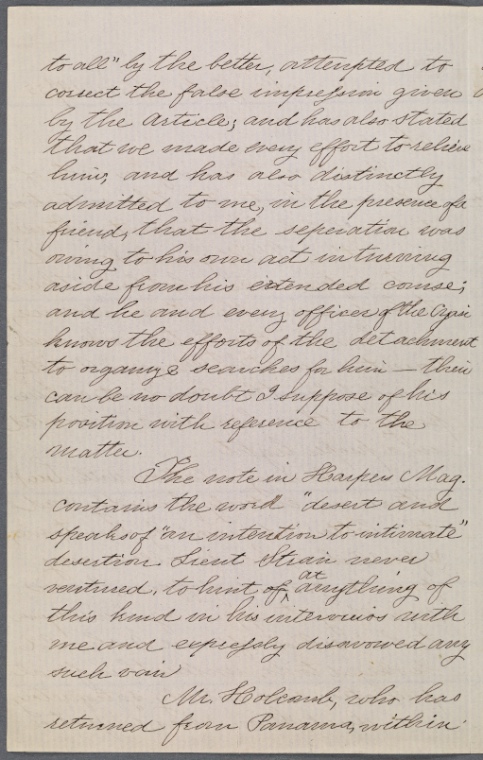 to all" by the better, attempted to
correct the false impression given
by the Article; and has also stated
that we made every effort to relieve
him, and has also distinctly
admitted to me, in the presence of a
friend, that the seperation was
owing to his own act in turning
aside from his intended course;
and he and every officer of the
knows the efforts of the detachment
to organize searches for him — their
can be no doubt I suppose of his
position with reference to the
matter.
The note in Harpers Mag.
contains the word "desert and
speaks of "an intention to intimate"
desertion. Lieut Strain never
ventured, to hint of, at anything of
this kind in his interviews with
me and expressly disavowed any
such
Mr. Holcomb, who has
returned from Panama, within